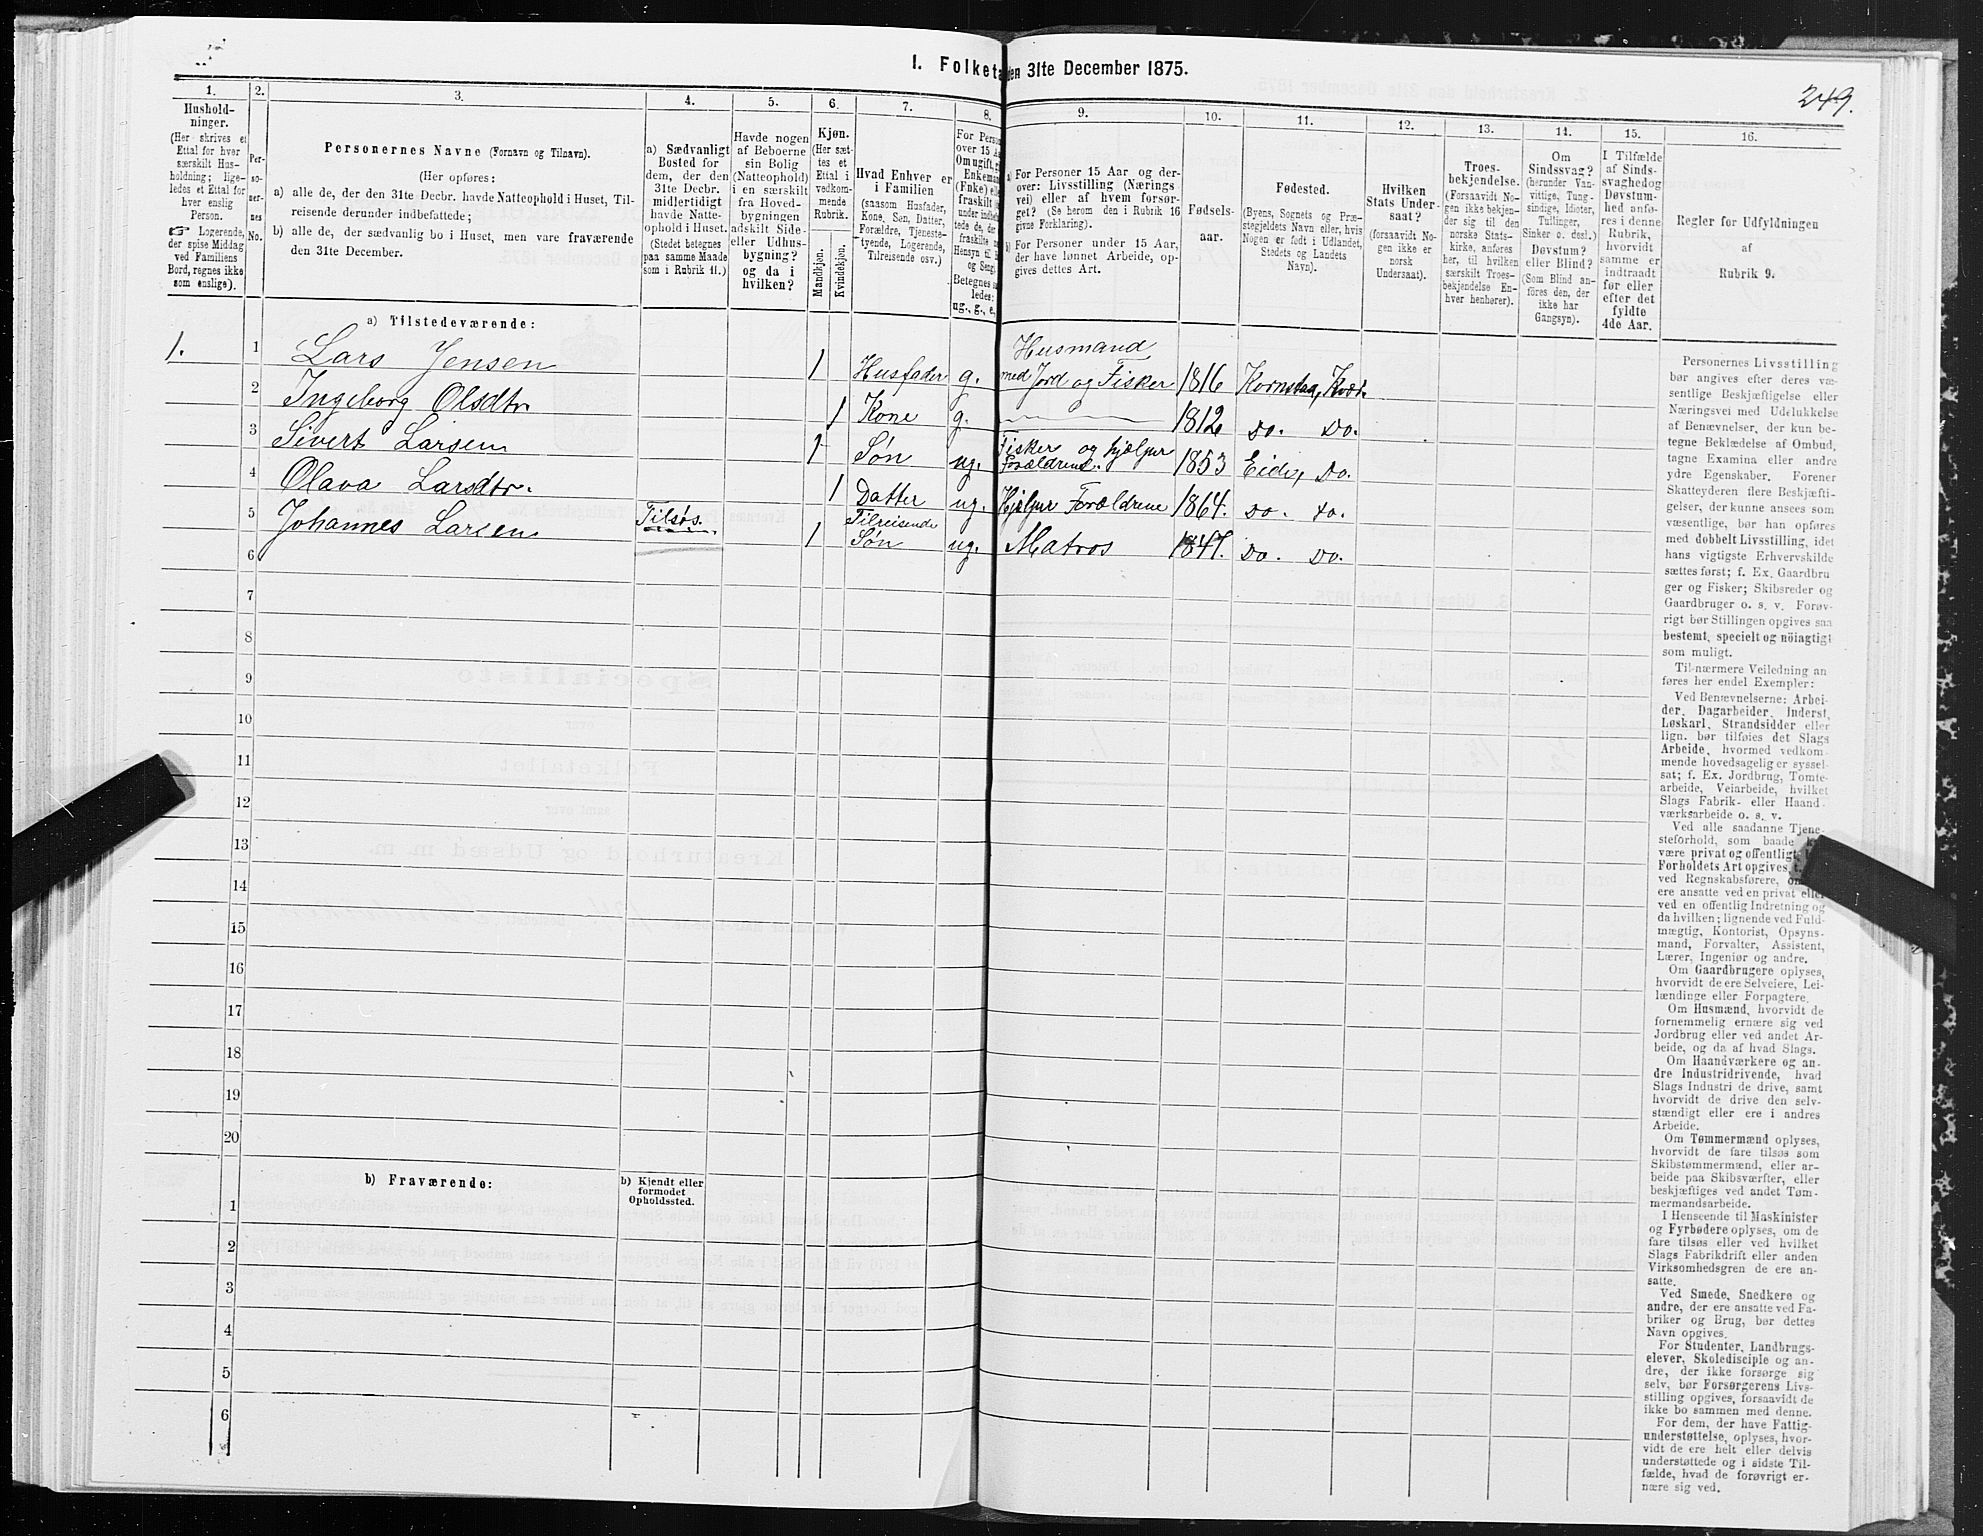 I. Folketa
den 31te December 1875.
249.
1.
Hushold-
ninger.
(Her skrives et
Ettal for hver
særskilt Hus-
holdning; lige-
ledes et Ettal for
hver enslig
Person.
☞ Logerende,
der spise Middag
ved Familiens
Bord, regnes ikke
som enslige).
2.
Per-
so-
ner-
nes
No.
3.
Personernes Navne (Fornavn og Tilnavn).
(Her opføres:
a) alle de, der den 31te Decbr. havde Natteophold i Huset, Til-
reisende derunder indbefattede;
b) alle de, der sædvanlig bo i Huset, men vare fraværende
den 31te December.
4.
a) Sædvanligt
Bosted for
dem, der den
31te Decbr.
midlertidigt
havde Natte-
ophold i Huset.
(Stedet betegnes
paa samme Maade
som i Rubrik 11.)
5.
Havde nogen
af Beboerne
sin Bolig
(Natteophold)
i en særskilt
fra Hoved-
bygningen
adskilt Side-
eller Udhus-
bygning?
og da i
hvilken?
6.
Kjøn.
(Her sæt-
tes et
Ettal i
vedkom-
mende
Rubrik.
Mandkjøn.
Kvindekjøn.
7.
Hvad Enhver er
i Familien
(saasom Husfader,
Kone, Søn, Datter,
Forældre, Tjeneste-
tyende, Logerende,
Tilreisende osv.)
8.
For Perso
over 15 A
Om ugift, g
Enkeman
(Fnke) el
fraskilt
under indb
tede de, d
fraskilte
Hensyn til
og Seng
Betegnes s
ledes:
ug., g., e,
9.
a) For Personer 15 Aar og der-
over: Livsstilling (Nærings
vei) eller af hvem forsør-
get? (Se herom den i Rubrik 16
givne Forklaring).
b) For Personer under 15 Aar,
der have lønnet Arbeide, op-
gives dettes Art.
10.
Fødsels-
aar.
11.
Fødested.
(Byens, Sognets og Præ-
stegjeldets Navn eller, hvis
Nogen er født i Udlandet,
Stedets og Landets
Navn).
12.
Hvilken
Stats Under-
saat?
(forsaavidt No-
gen ikke er
norsk
Undersaat).
13.
Troes-
bekjendelse.
(Forsaavidt No-
gen ikke bekjen-
der sig til den
norske Stats-
kirke, anføres
her, til hvilken
særskilt Troes-
bekjendelse En-
hver henhører).
14.
Om
Sindssvag?
(herunder Van-
vittige, Tung-
sindige, Idioter,
Tullinger,
Sinker o. desl.)
Døvstum?
eller Blind?
(Som Blind an-
føres den, der
ikke har
Gangsyn).
15.
I Tilfælde
af Sinds-
svaghed og
Døvstum-
hed anfø-
res i denne
Rubrik,
hvorvidt
samme er
indtraadt
før eller
efter det
fyldte
4de Aar.
16.
Regler for Udfyldningen
af
Rubrik 9.
a) Tilstedeværende:
1. 1 Lars Jensen 1 Husfader g. Husmand
med Jord og Fisker 1816 Kornstad, Kved.
2 Ingeborg Olsdtr 1 Kone g. 1812 Do. Do.
3 Sivert Larsen 1 Søn ug. Fisker og hjælper
Forældrene 1853 Eide, Do.
4 Olava Larsdtr. 1 Datter ug. Hjelper Forældrene 1864. Do. Do.
5 Johannes Larsen Tilsøs. 1 Tilreisende
Søn ug. Matros 1847. Do. Do.
6
7
8
9
10
11
12
13
14
15
16
17
18
19
20
b) Fraværende:
b) Kjendt eller
formodet
Opholdssted.
1
2
3
4
5
6
Personernes Livsstilling
bør angives efter deres væ-
sentlige Beskjæftigelse eller
Næringsvei med Udelukkelse
af Benævnelser, der kun be-
tegne Beklædelse af Ombud,
tagne Examina eller andre
ydre Egenskaber. Forener
Skatteyderen flere Beskjæfti-
gelser, der kunne ansees som
væsentlige, bør han opføres
med dobbelt Livsstilling, idet
hans vigtigste Erhvervskilde
sættes først; f. Ex. Gaardbru
ger og Fisker; Skibsreder og
Gaardbruger o. s. v. Forøv-
rigt bør Stillingen opgives saa
bestemt, specielt og nöiagtigt
som muligt.
Til nærmere Veiledning an
føres her endel Exempler:
Ved Benævnelserne: Arbei-
der, Dagarbeider, Inderst,
Løskarl, Strandsidder eller
lign. bør tilføies det Slags
Arbeide, hvormed vedkom-
mende hovedsagelig er syssel-
sat; f. Ex. Jordbrug, Tomte-
arbeide, Veiarbeide, hvilket
Slags Fabrik- eller Haand-
værksarbeide o. s. v.
Ved alle saadanne Tjene-
steforhold, som baade
være privat og offentligt,
Forholdets Art opgives,
ved Regnskabsførere,
ere ansatte ved en privat eller
ved en offentlig Indretning og
da hvilken; lignende ved Fuld-
mægtig, Kontorist, Opsyns-
mand, Forvalter, Assistent,
Lærer, Ingeniør og andre.
Om Gaardbrugere oplyses,
hvorvidt de ere Selveiere, Lei-
lændinge eller Forpagtere.
Om Husmænd, hvorvidt de
fornemmelig ernære sig ved
Jordbrug eller ved andet Ar-
beide, og da af hvad Slags.
Om Haandværkere og an-
dre Industridrivende, hvad
Slags Industri de drive, samt
hvorvidt de drive den selv-
stændigt eller ere i andres
Arbeide.
Om Tømmermænd oplyses,
hvorvidt de fare tilsøs som
Skibstømmermænd, eller ar-
beide paa Skibsværfter, eller
beskjæftiges ved andet Tøm-
mermandsarbeide.
I Henseende til Maskinister
og Fyrbødere oplyses, om de
fare tilsøs eller ved hvilket
Slags Fabrikdrift eller anden
Virksomhedsgren de ere an-
satte.
Ved Smede, Snedkere og
andre, der ere ansatte ved Fa-
briker og Brug, bør dettes
Navn opgives.
For Studenter, Landbrugs-
elever, Skoledisciple og an-
dre, der ikke forsørge sig
selv, bør Forsørgerens Livs-
stilling opgives, forsaavidt de
ikke bo sammen med denne.
For dem, der have Fattig-
understøttelse, oplyses, hvor-
vidt de ere helt eller delvis
understøttede og i sidste Til-
fælde, hvad de forøvrigt er-
nære sig ved.